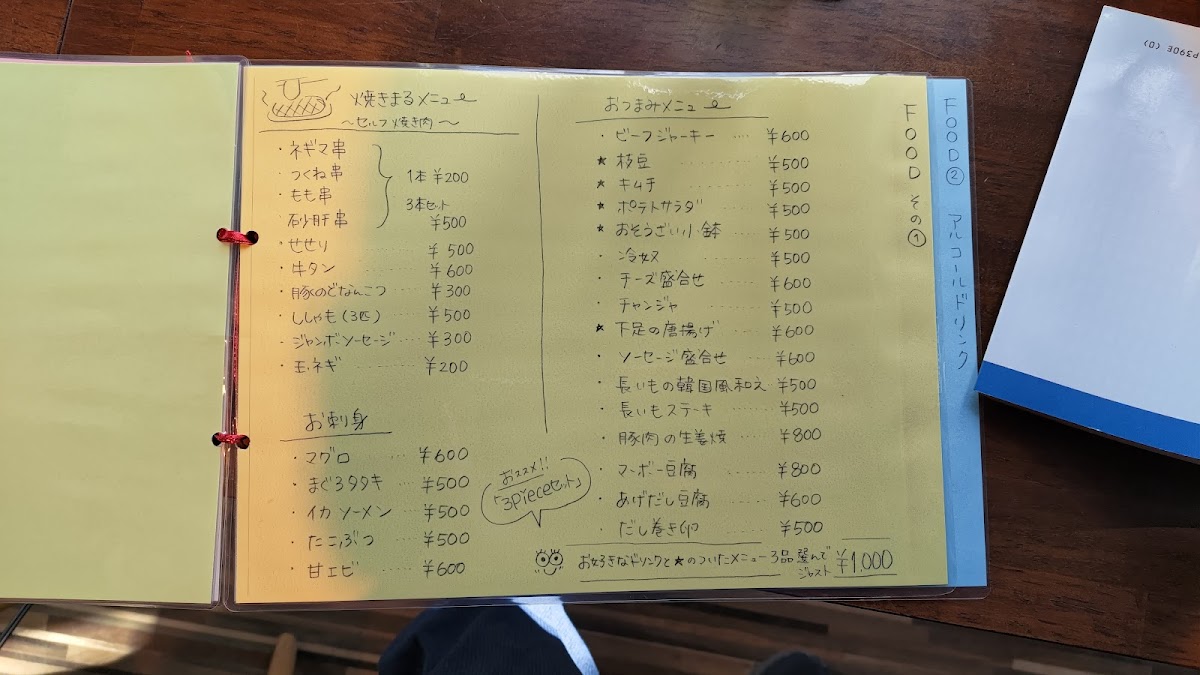 焼きまるメニュー
～セルフ焼き肉～
・ネギマ串
・つくね串
・もも串
・砂肝串
1本 ¥200
3本セット
¥500
・せせり ¥500
・牛タン ¥600
・豚のどなんこつ ¥300
・ししゃも(3匹) ¥500
・ジャンボソーセージ ¥300
・玉ネギ ¥200
お刺身
・マグロ ¥600
・まぐろタタキ ¥500
・イカソーメン ¥500
・たこぶつ ¥500
・甘エビ ¥600
おつまみメニュー
・ビーフジャーキー ¥600
★枝豆 ¥500
★キムチ ¥500
★ポテトサラダ ¥500
★おそうざい小鉢 ¥500
・冷奴 ¥500
・チーズ盛合せ ¥600
・チャンジャ ¥500
★下足の唐揚げ ¥600
・ソーセージ盛合せ ¥600
・長いもの韓国風和え ¥500
・長いもステーキ ¥500
・豚肉の生姜焼 ¥800
・マーボー豆腐 ¥800
・あげだし豆腐 ¥600
・だし巻き卵 ¥500
おススメ!!
「3Pieceセット」
お好きなドリンクと★のついたメニュー3品選んで
ジャスト ¥1,000
FOOD その①
FOOD② アルコールドリンク
P390E (0)